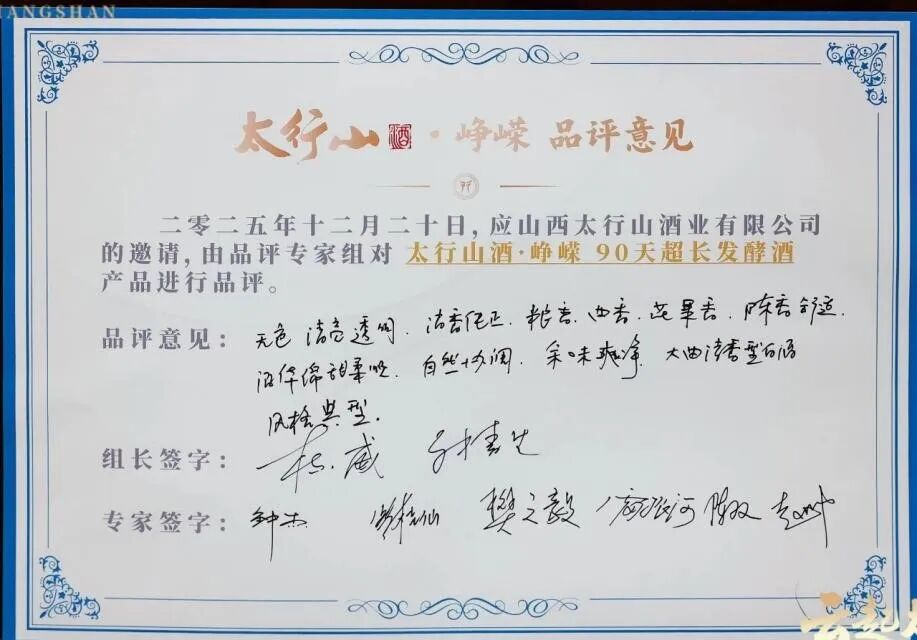 HANGSHAN
太行山酒·峥嵘 品评意见
二零二五年十二月二十日，应山西太行山酒业有限公司
的邀请，由品评专家组对 太行山酒·峥嵘 90天超长发酵酒
产品进行品评。
品评意见：无色 清亮透明、清香纯正、粮香、曲香、花果香、陈香舒适、
酒体绵甜柔顺、自然协调、余味爽净、大曲清香型白酒
风格典型。
组长签字：杜威
专家签字：钟杰 樊之毅